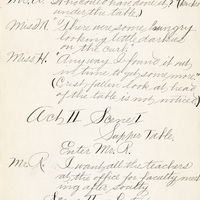 under the table.)
Miss M. "There were some hungry
looking little darkies
on the curb."
Miss H. "Anyway I found it out
in time to get some more."
(Crest fallen look at head
of the table is not noticed)
Act II Scene I
Supper Table.
Enter Mr. R.
Mr. R "I want all the teachers
at the office for faculty meet
ing after society